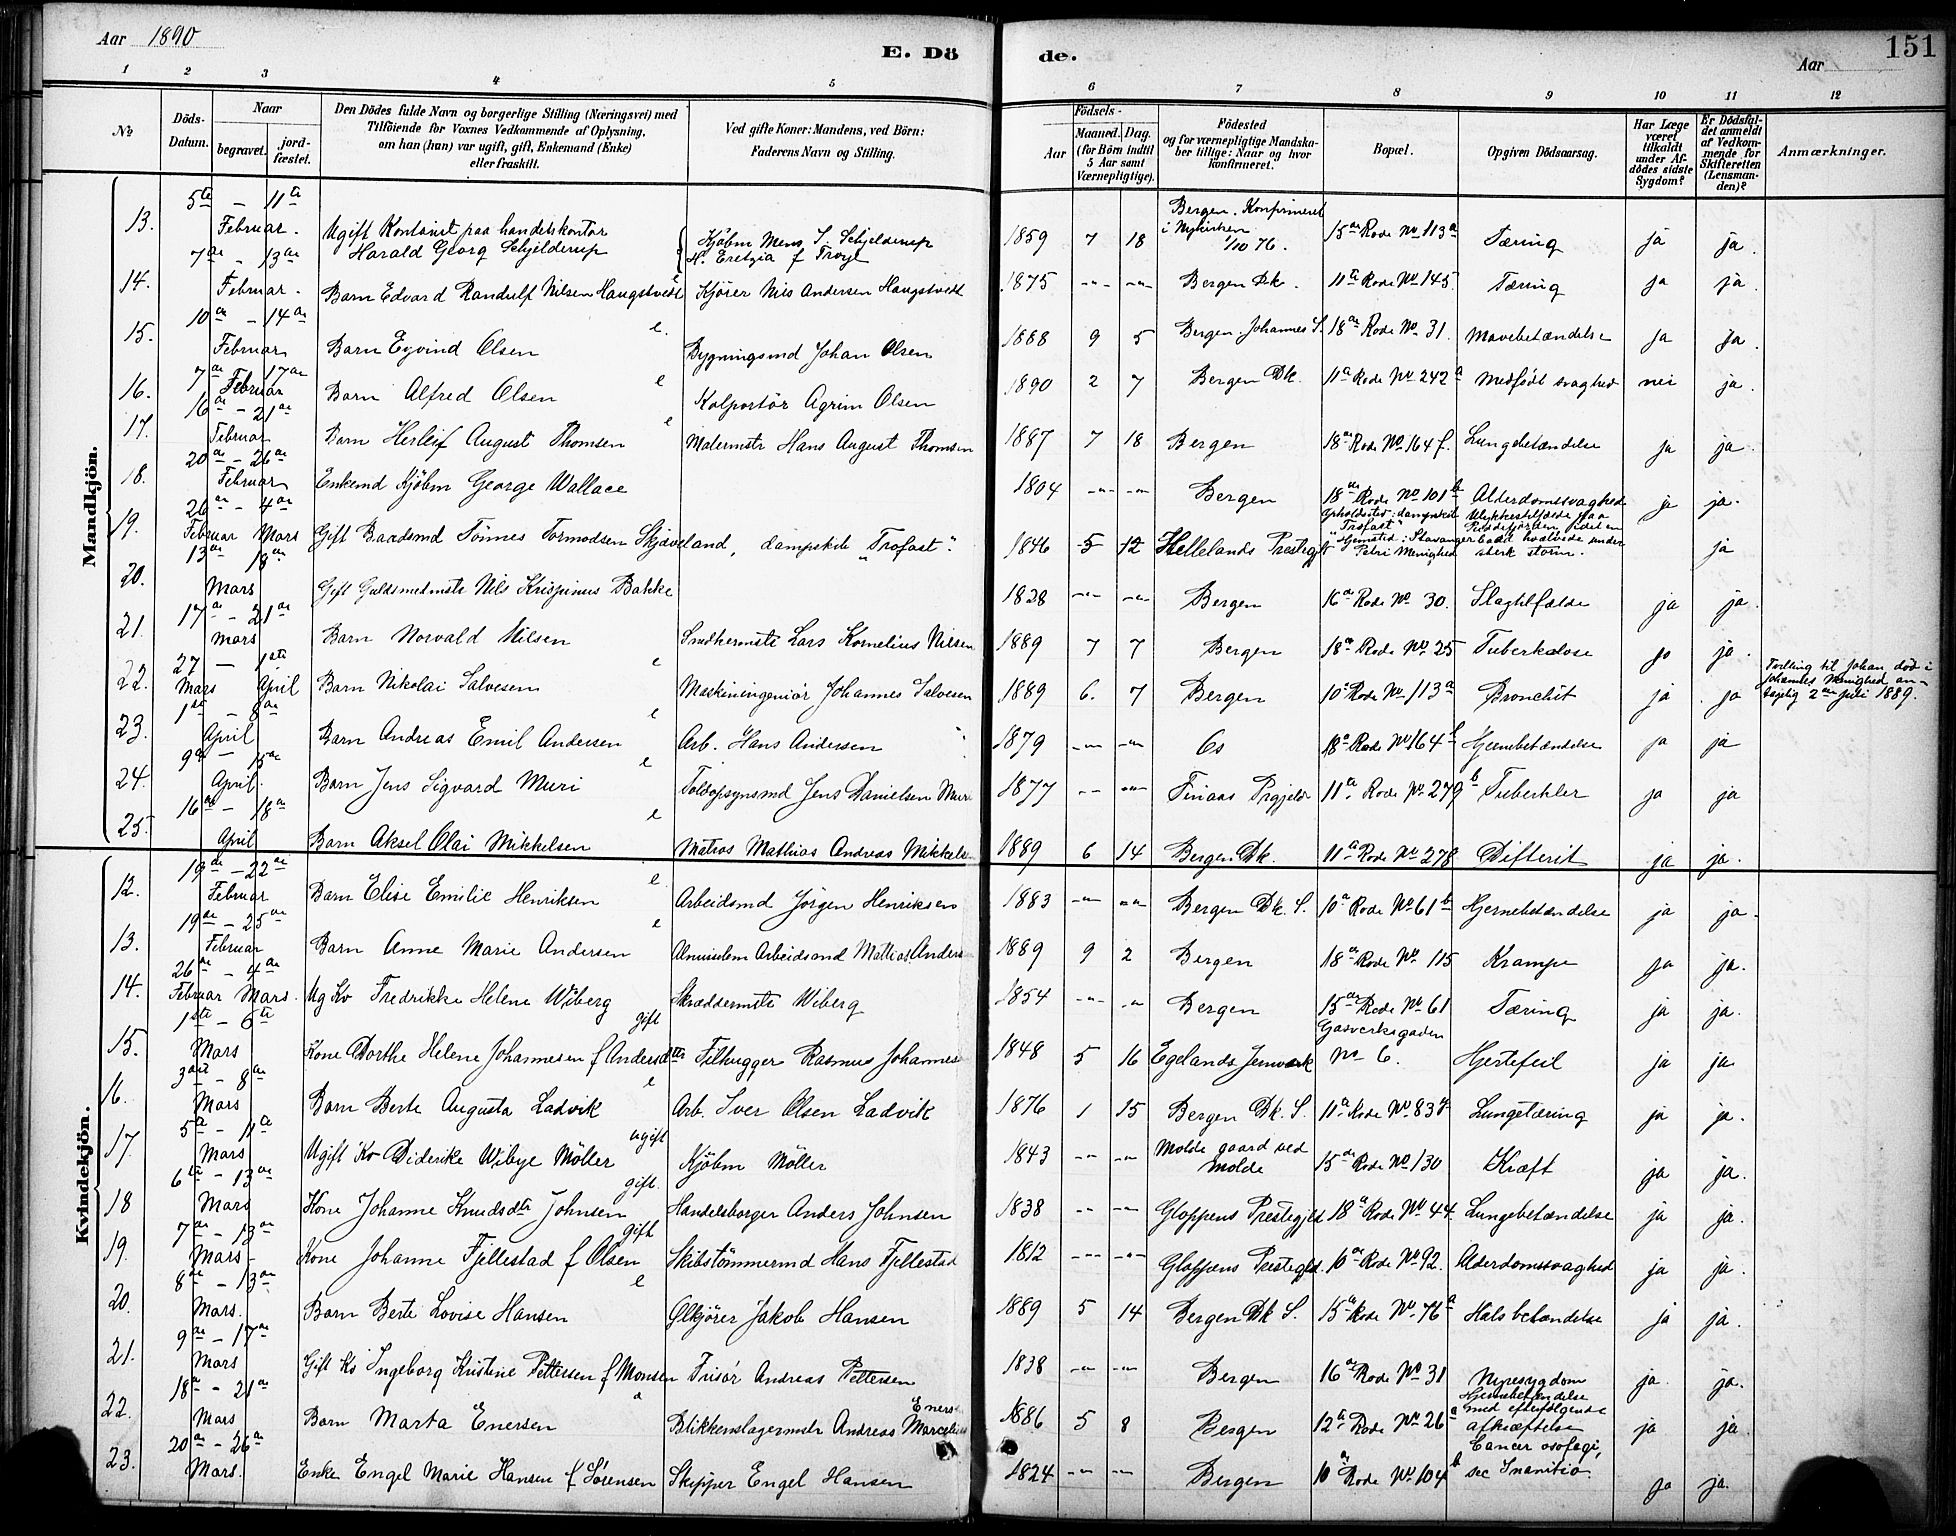 Aar 1890
E. Dö
de.
Aar
151
1 2 3 4 5 6 7 8 9 10 11 12
No
Döds-Datum.
Naar
begravet.
jord-fæstet.
Den Dödes fulde Navn og borgerlige Stilling (Næringsvei) med
Tilföiende for Voxnes Vedkommende af Oplysning,
om han (han) var ugift, gift, Enkemand (Enke)
eller fraskilt.
Ved gifte Koner: Mandens, ved Börn:
Faderens Navn og Stilling.
Födsels-
Aar
Maaned. Dag.
(for Börn indtil
5 Aar samt
Værnepligtige).
Födested
og for værnepligtige Mandska-
ber tillige: Naar og hvor
konfirmeret.
Bopæl.
Opgiven Dödsaarsag.
Har Læge
været
tilkaldt
under Af-
dödes sidste
Sygdom?
Er Dödsfal-
det anmeldt
af Vedkom-
mende for
Skifteretten
(Lensman-
den)?
Anmærkninger.
Mandkjön.
13. 5te – 11te Februar. Ugift Kontorist paa handelskontor Harald Georg Schjelderup Kjöbm Mens S. Schjelderup H. Eretzia f Troye 1859 7 18 Bergen. Konfirmeret i Nykirken 1/10 76. 15de Rode No 113a Tæring ja ja.
14. 7de – 13de Februar. Barn Edvard Randulf Nilsen Haugstvedt e Kjörer Nils Andersen Haugstvedt 1875 -"- -"- Bergen Dk. 11te Rode No 145 Tæring ja ja.
15. 10de – 14de Februar Barn Eyvind Olsen e. Bygningsmd Johan Olsen 1888 9 5 Bergen. Johannes S. 18de Rode No 31. Mavebetændelse ja ja.
16. 7de 17de Februar Barn Alfred Olsen e Kolportör Agrim Olsen 1890 2 7 Bergen Dk. 11te Rode No 242a Medfödt svaghed nei ja.
17. 16de – 21de Februar Barn Herleif August Thomsen e Malermstr Hans August Thomsen 1887 7 18 Bergen 18de Rode No 164 f. Lungebetændelse ja ja.
18. 20de – 26de Februar Enkemd Kjöbm George Wallace 1804 -"- -"- Bergen 18de Rode No 101b Alderdomssvaghed ja ja.
19. 26de – 4de Februar Mars Gift Baadsmd Tönnes Tormodsen Skjæveland, dampskib "Trofast". 1846 5 12 Hellelands Prestegj. Opholdssted: dampskib "Trofast" Hjemsted: Stavanger Petri Menighed Ulykkestilfælde paa Puddefjorden, idet en baad kvalvede under sterk storm. ja
20. 13de 18de Mars Gift Guldsmedmstr Nils Krispinus Bakke 1828 -"- -"- Bergen 16de Rode No 30. Slagtilfælde ja ja.
21. 17de – 21de Mars Barn Norvald Nilsen Snedkermstr Lars Kornelius Nilsen 1889 7 7 Bergen 18de Rode No 25 Tuberkulose ja ja.
22. 27 – 1ste Mars April Barn Nikolai Salvesen e Maskiningeniör Johannes Salvesen 1889 6. 7 Bergen 10de Rode No 113a Bronchit ja ja Tvilling til Johan död i Johannes Menighed an-tagelig 2den Juli 1889.
23. 1ste – 8de April Barn Andreas Emil Andersen e Arb. Hans Andersen 1879 -"- -"- Os 18de Rode No 164b Hjernebetændelse ja ja
24. 9de – 15de April. Barn Jens Sigvard Muri e Toldopsynsmd Jens Danielsen Muri 1877 -"- -"- Finaas Prgjeld 11te Rode No 279b Tuberkler ja ja
25. 16de – 18de April Barn Aksel Olai Mikkelsen e Matros Mathias Andreas Mikkelsen 1889 6 14 Bergen. Dk. 11te Rode No 278 Difterit ja ja.
Kvindekjön.
12. 19de – 22de Februar Barn Elise Emilie Henriksen e. Arbeidsmd Jörgen Henriksen 1883 -"- -"- Bergen Dk. S. 10de Rode No 61b Hjernebetændelse ja ja.
13. 19de – 25de Februar Barn Anne Marie Andersen e Almuelem Arbeidsmd Mathias Anders 1889 9 2 Bergen 18de Rode No 115 Krampe ja ja.
14. 26de – 4de Februar Mars. Ug Kv Fredrikke Helene Wiberg Skræddermstr Wiberg 1854 -"- -"- Bergen 15de Rode No 61 Tæring ja ja.
15. 1ste – 6te Mars Kone Dorthe Helene Johannesen f Andersdtr gift Filhugger Rasmus Johannes 1848 5 16 Egelands Jernverk Gasverksgaden No 6. Hjertefeil ja ja
16. 3die – 8de Mars Barn Berte Augusta Ladvik e Arb. Iver Olsen Ladvik 1876 1 15 Bergen Dk. S. 11te Rode No 83 Lungetæring ja ja.
17 5te – 11te Mars Ugift Kv Diderike Wibye Möller ugift Kjöbm Möller 1843 -"- -"- Molde gaard ved Molde 15de Rode No 130 Kræft ja ja.
18 6te – 13de Mars Kone Johanne Knudsdtr Johnsen gift. Handelsborger Anders Johnsen 1838 -"- -"- Gloppens Prestegjeld 18de Rode No 44. Lungebetændelse ja ja.
19. 7de – 13de Mars Kone Johanne Fjellestad f Olsen gift Skibstömmermd Hans Fjellestad 1812 -"- -"- Gloppens Prestegjld. 16de Rode No 92. Alderdomssvaghed ja ja.
20. 8de – 13de Mars. Barn Berte Lovise Hansen e Ölkjörer Jakob Hansen 1889 5 14 Bergen Dk S. 15de Rode No 76a Halsbetændelse ja ja.
21. 9de – 17de Mars Gift Kv Ingeborg Kristine Pettersen f Monsen Frisör Andreas Pettersen 1838 -"- -"- Bergen 16de Rode No 31 Nyresygdom ja ja.
22. 18de – 21de Mars Barn Marta Enersen e Blikkenslagermstr Andreas Marcelius Eners 1886 5 8 Bergen 12te Rode No 26a Hjernebetændelse med efterfölgende afkræftelse ja ja.
23. 20de – 26de Mars. Enke Engel Marie Hansen f Sörensen Skipper Engel Hansen 1824 -"- -"- Bergen 10de Rode No 104b Cancer osofagi, sec Inanitio. ja ja.